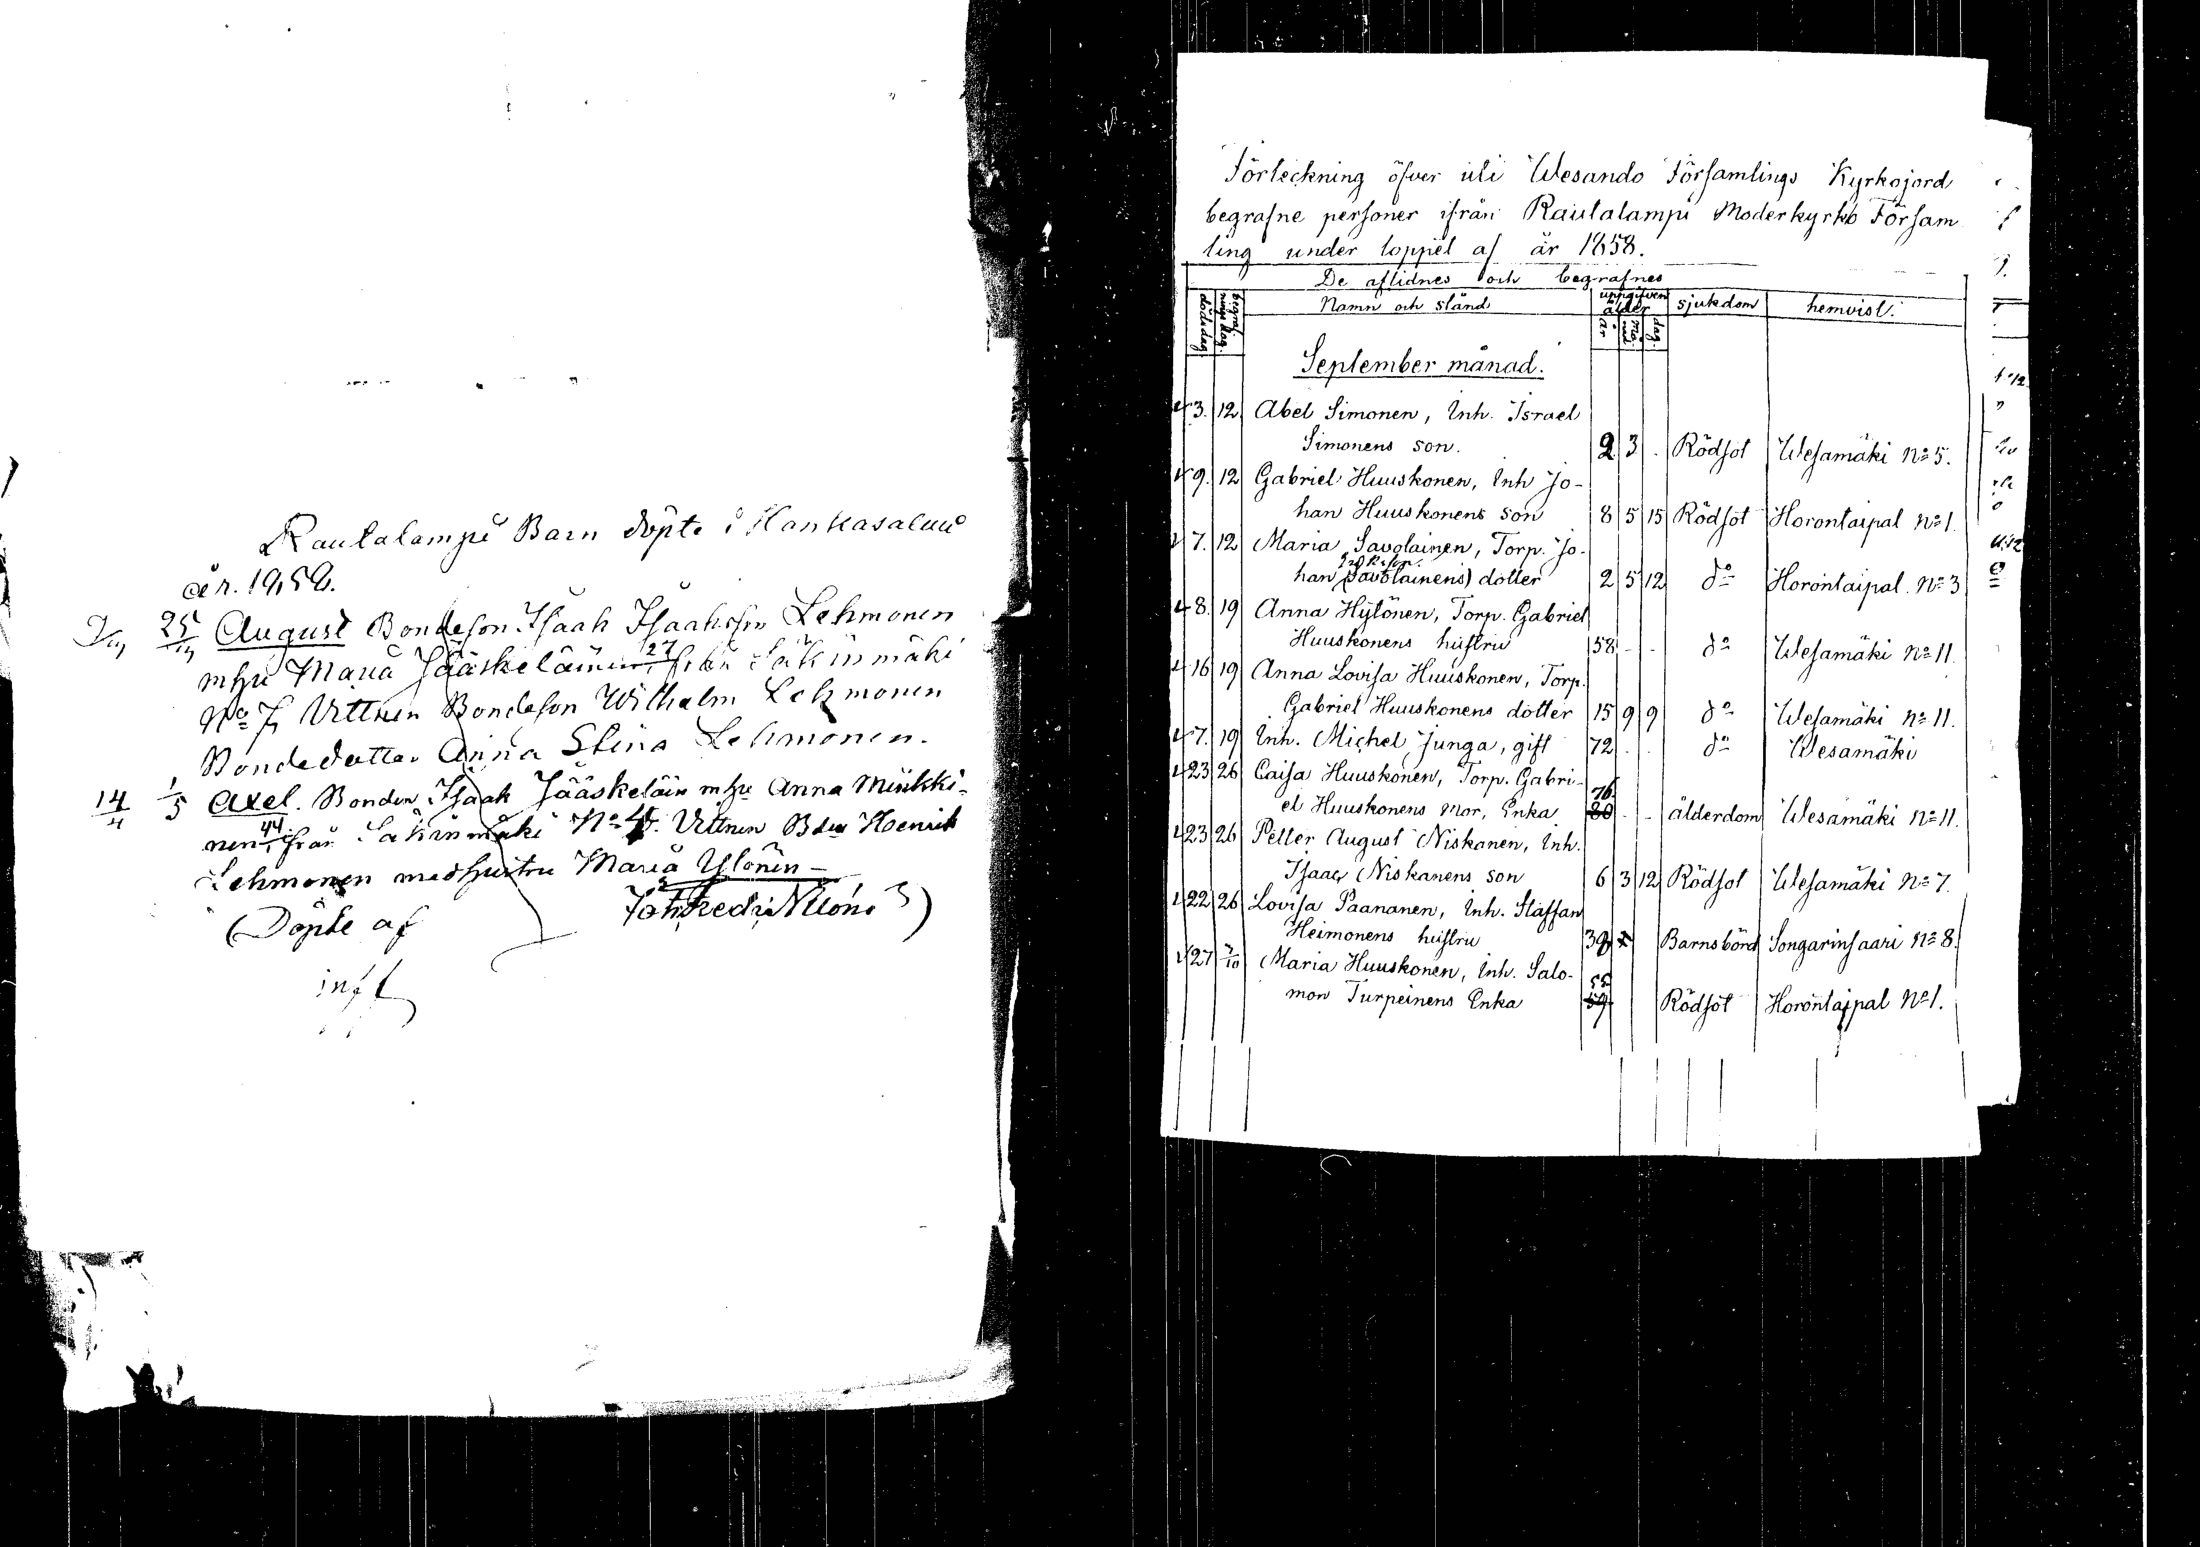 Rautalampi Barn döpte i Hankasalmi
år. 1858.
25 August Bondeson Isaak Isaaksson Lehmonen
mhu Maria Jääskeläinen 27 från Säkinmäki
No 7, Vittnen Bondeson Wilhelm Lehmonen
Bondedotter Anna Stina Lehmonen.
14/4 1/5 Axel. Bonden Isaak Jääskeläin mhu Anna Minkki-
nen 44 från Säkinmäki No 4. Vittnen Bden Henrik
Lehmonen med hustru Maria Ylönen
(Döpte af
inft
Förteckning öfver uti Wesando Församlings Kyrkojord
begrafne personer ifrån Rautalampi Moderkyrko Försam
ling under loppet af år 1858.
De aflidnes och begrafnes
dödsdag begrafnings dag. Namn och stånd uppgifven ålder sjukdom hemvist.
år månd dag.
September månad.
3. 12 Abel Simonen, Inh. Israel
Simonens son. 2 3 . Rödsot Wesamäki No 5.
9. 12 Gabriel Huuskonen, Inh Jo-
han Huuskonens son 8 5 15 Rödsot Horontaipal No 1.
7. 12 Maria Savolainen, Torp. Jo-
han (Savolainens) dotter 2 5 12 do Horontaipal. No 3
8. 19 Anna Hytönen, Torp. Gabriel
Huuskonens hustru 58 - - do Wesamäki No 11.
16 19 Anna Lovisa Huuskonen, Torp.
Gabriel Huuskonens dotter 15 9 9 do Wesamäki No 11.
7. 19 Inh. Michel Junga, gift 72 . . do Wesamäki
23 26 Caisa Huuskonen, Torp. Gabri-
76
el Huuskonens mor, Enka 80 . - ålderdom Wesamäki No 11.
23 26 Petter August Niskanen, Inh.
Isaac Niskanens son 6 3 12 Rödsot Wesamäki No 7.
22 26 Lovisa Paananen, Inh. Staffan
Heimonens hustru 39 Barnsbörd Songarinsaari No 8.
27 3/10 Maria Huuskonen, Inh. Salo-
55
mon Turpeinens Enka 59 Rödsot Horontaipal No 1.